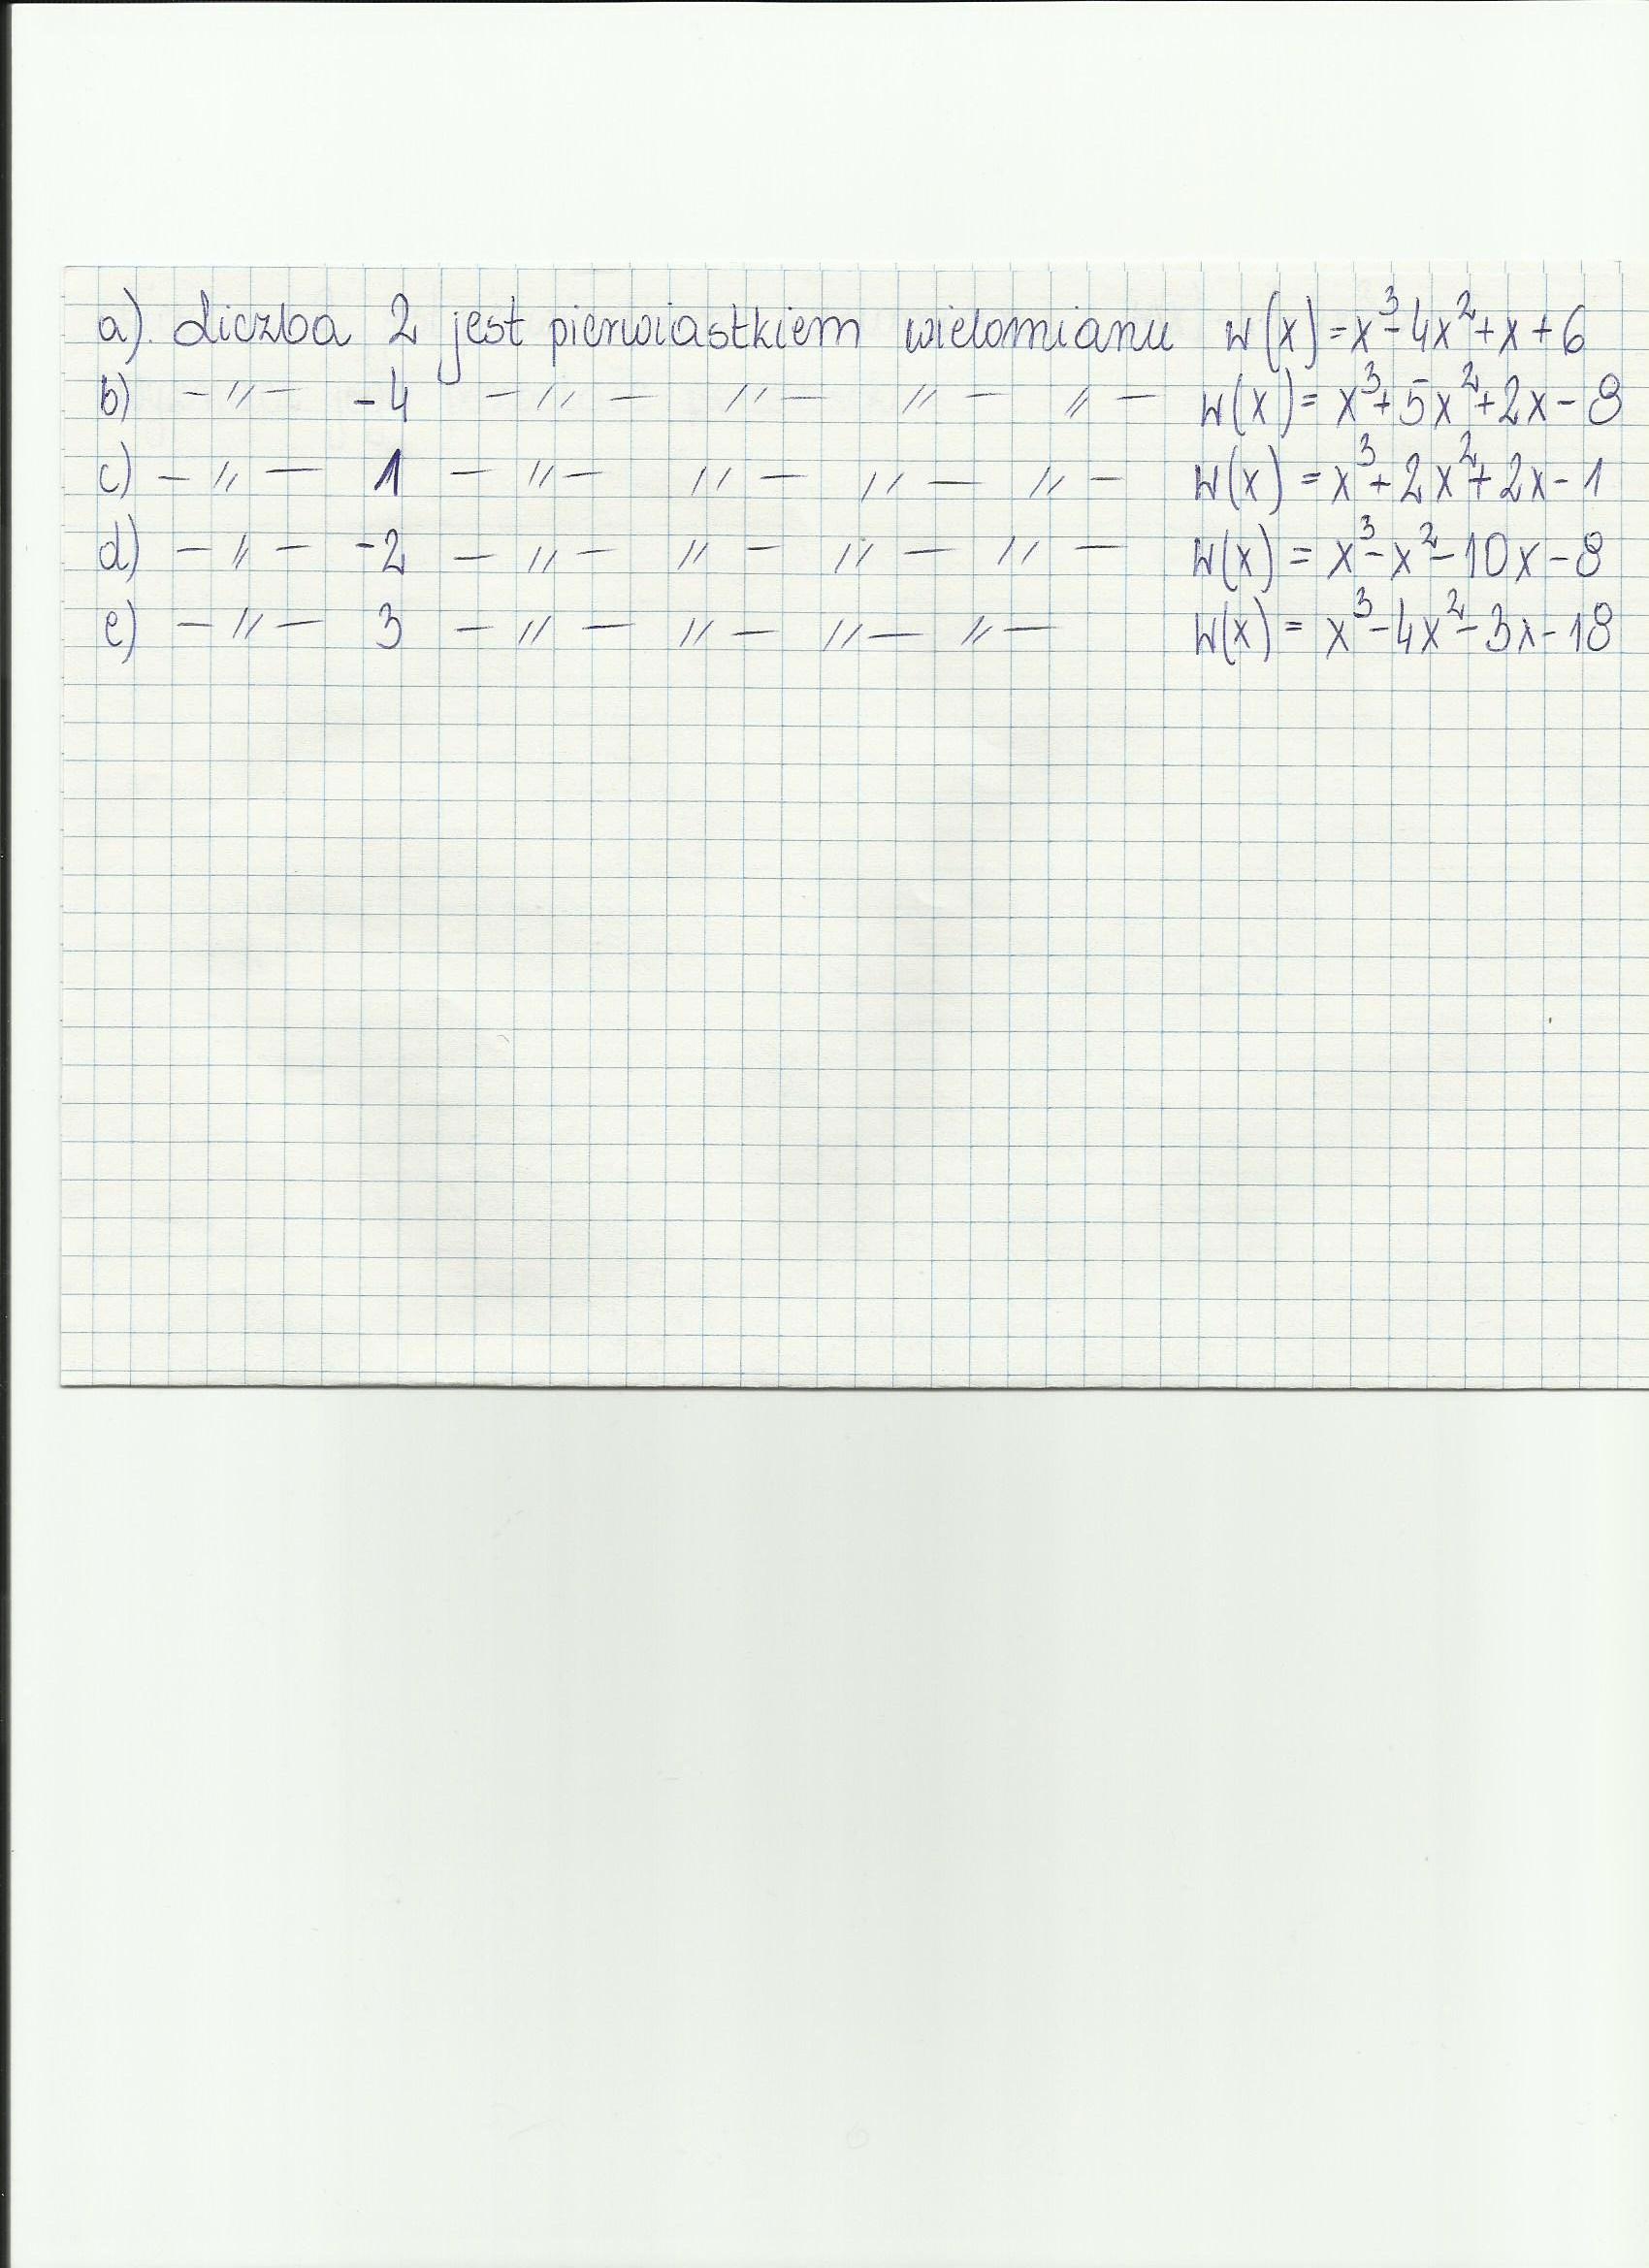 a). Liczba 2 jest pierwiastkiem wielomianu W(x)=x³-4x²+x+6
b) -〃- -4 -〃- 〃- 〃- 〃- W(x)= x³+5x²+2x-8
c) -〃- 1 -〃- 〃- 〃- 〃- W(x)=x³+2x²+2x-1
d) -〃- -2 -〃- 〃- 〃- 〃- W(x)= x³-x²-10x-8
e) -〃- 3 -〃- 〃- 〃- 〃- W(x)= x³-4x²-3x-18